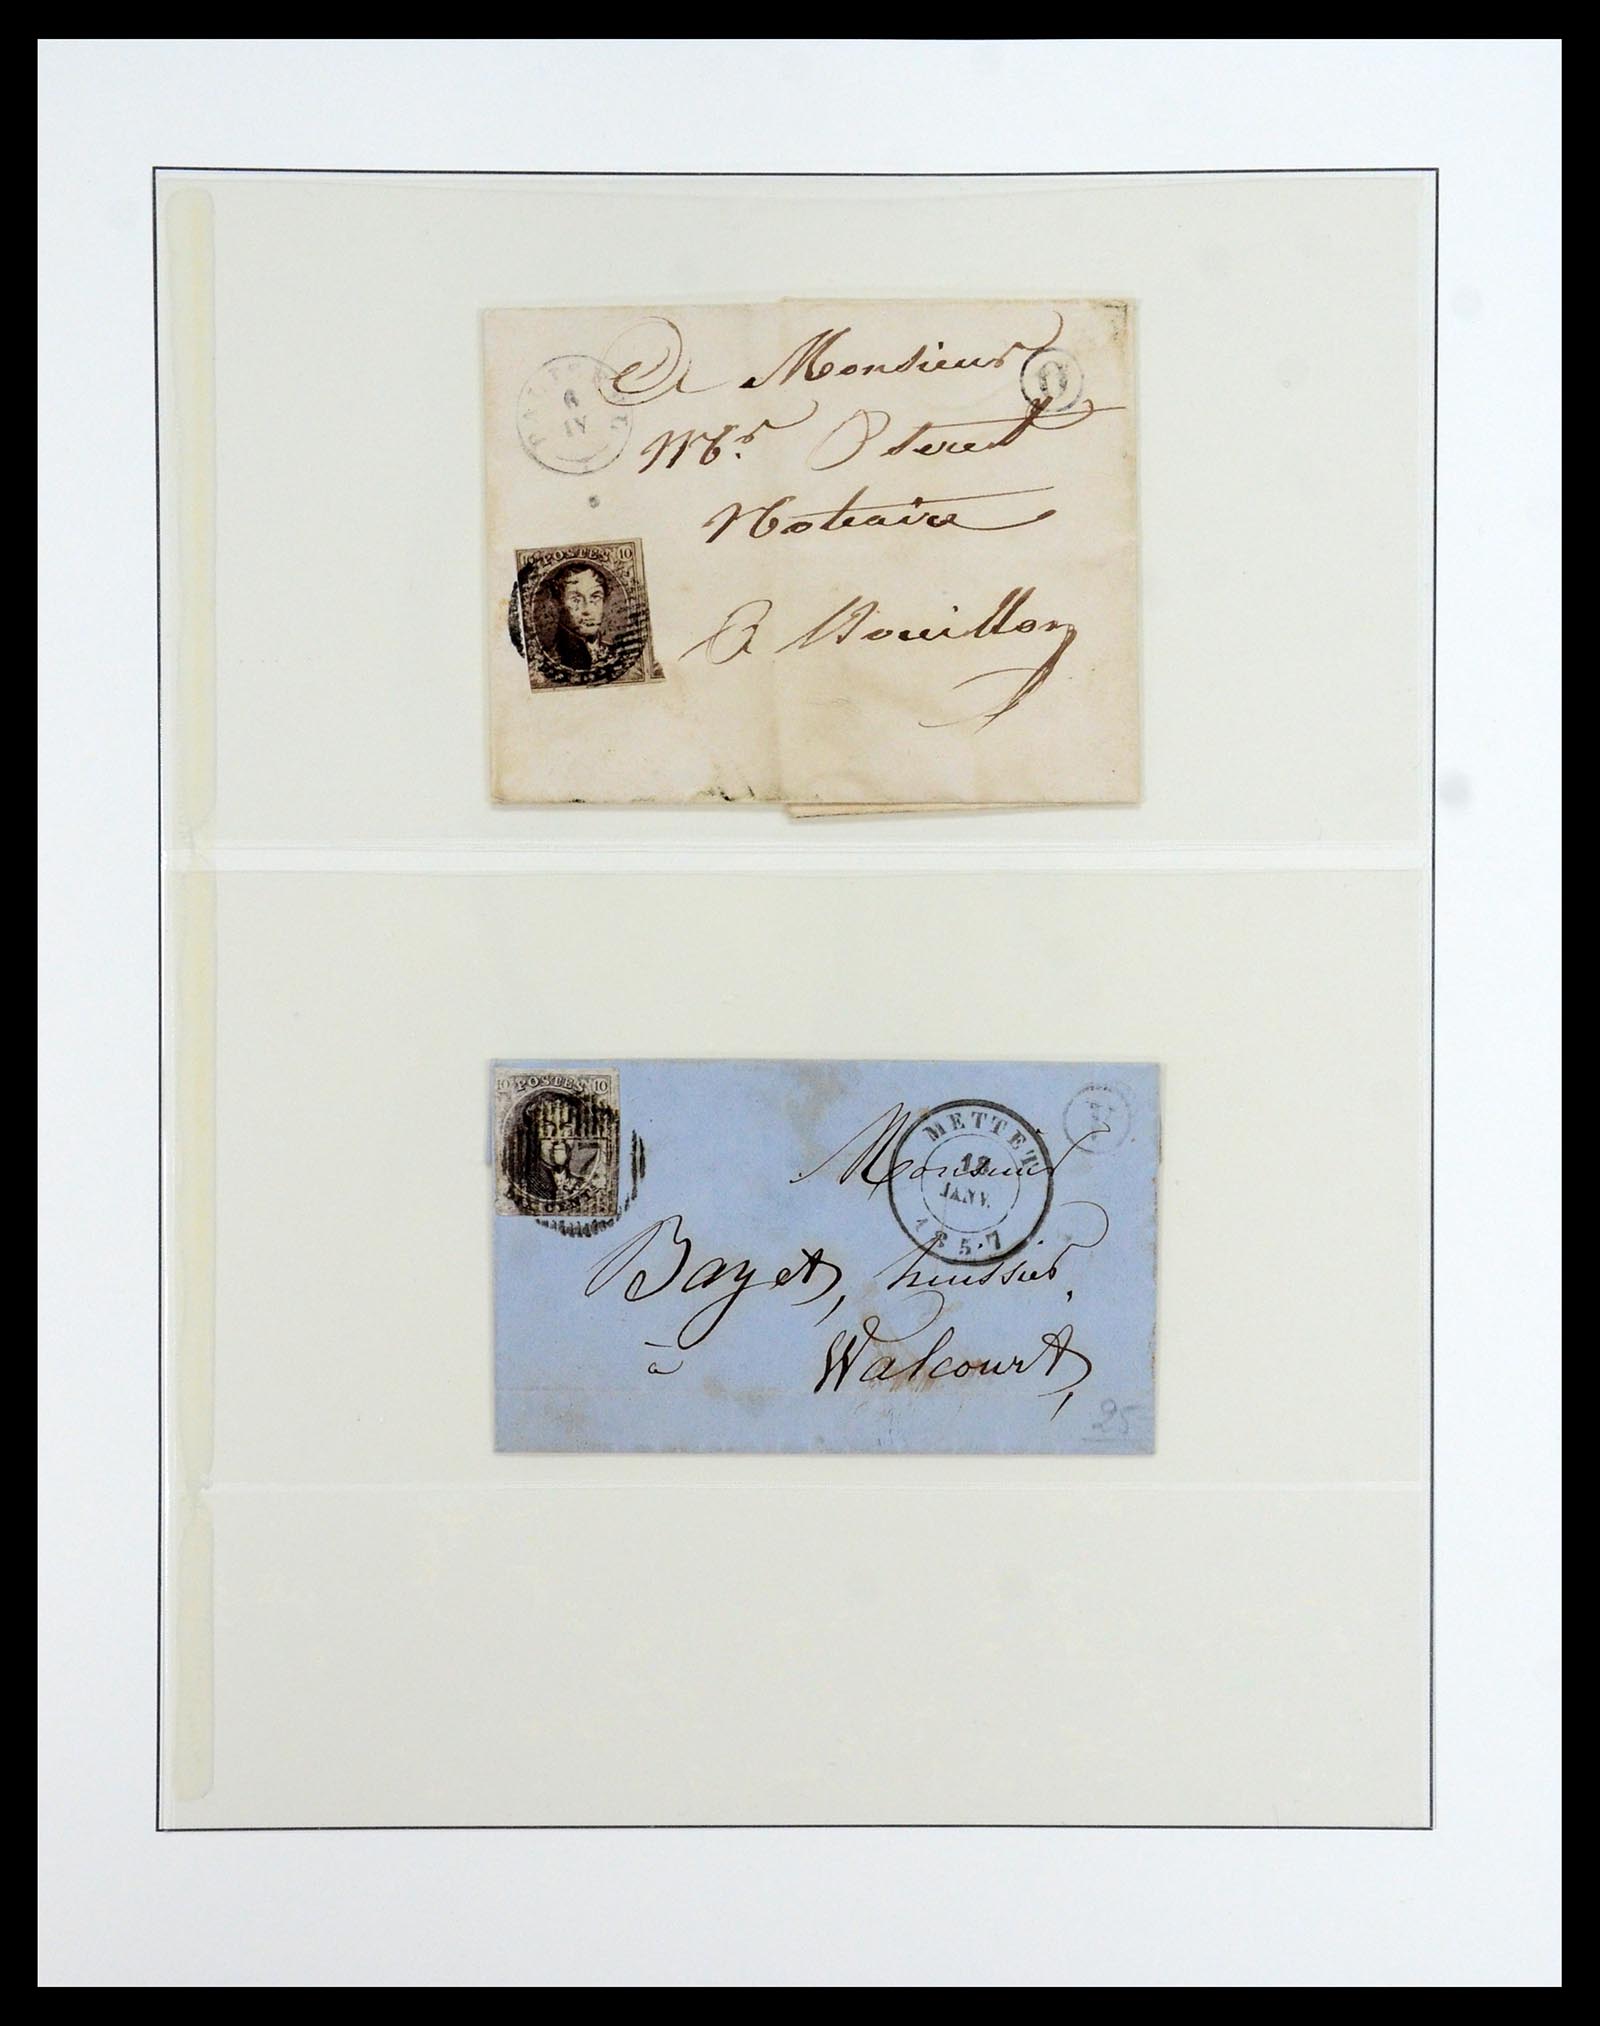 A Monsieur
O
6
IV
Notaire
A Bouillon
10 POSTES 10
10 POSTES 10
METTET
12
JANV.
1857
Monsieur
Bayet, huissier,
à Walcourt,
25